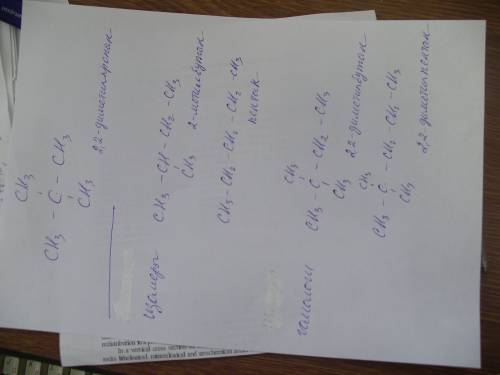 CH₃
CH₃ - C - CH₃
CH₃
2,2-диметилпропан
изомеры
CH₃ - CH - CH₂ - CH₃
CH₃ 2-метилбутан
CH₃ - CH₂ - CH₂ - CH₂ - CH₃
пентан
гомологи
CH₃
CH₃ - C - CH₂ - CH₃
CH₃ 2,2-диметилбутан
CH₃
CH₃ - C - CH₂ - CH₂ - CH₃
CH₃ 2,2-диметилпентан
In a vertical cross section